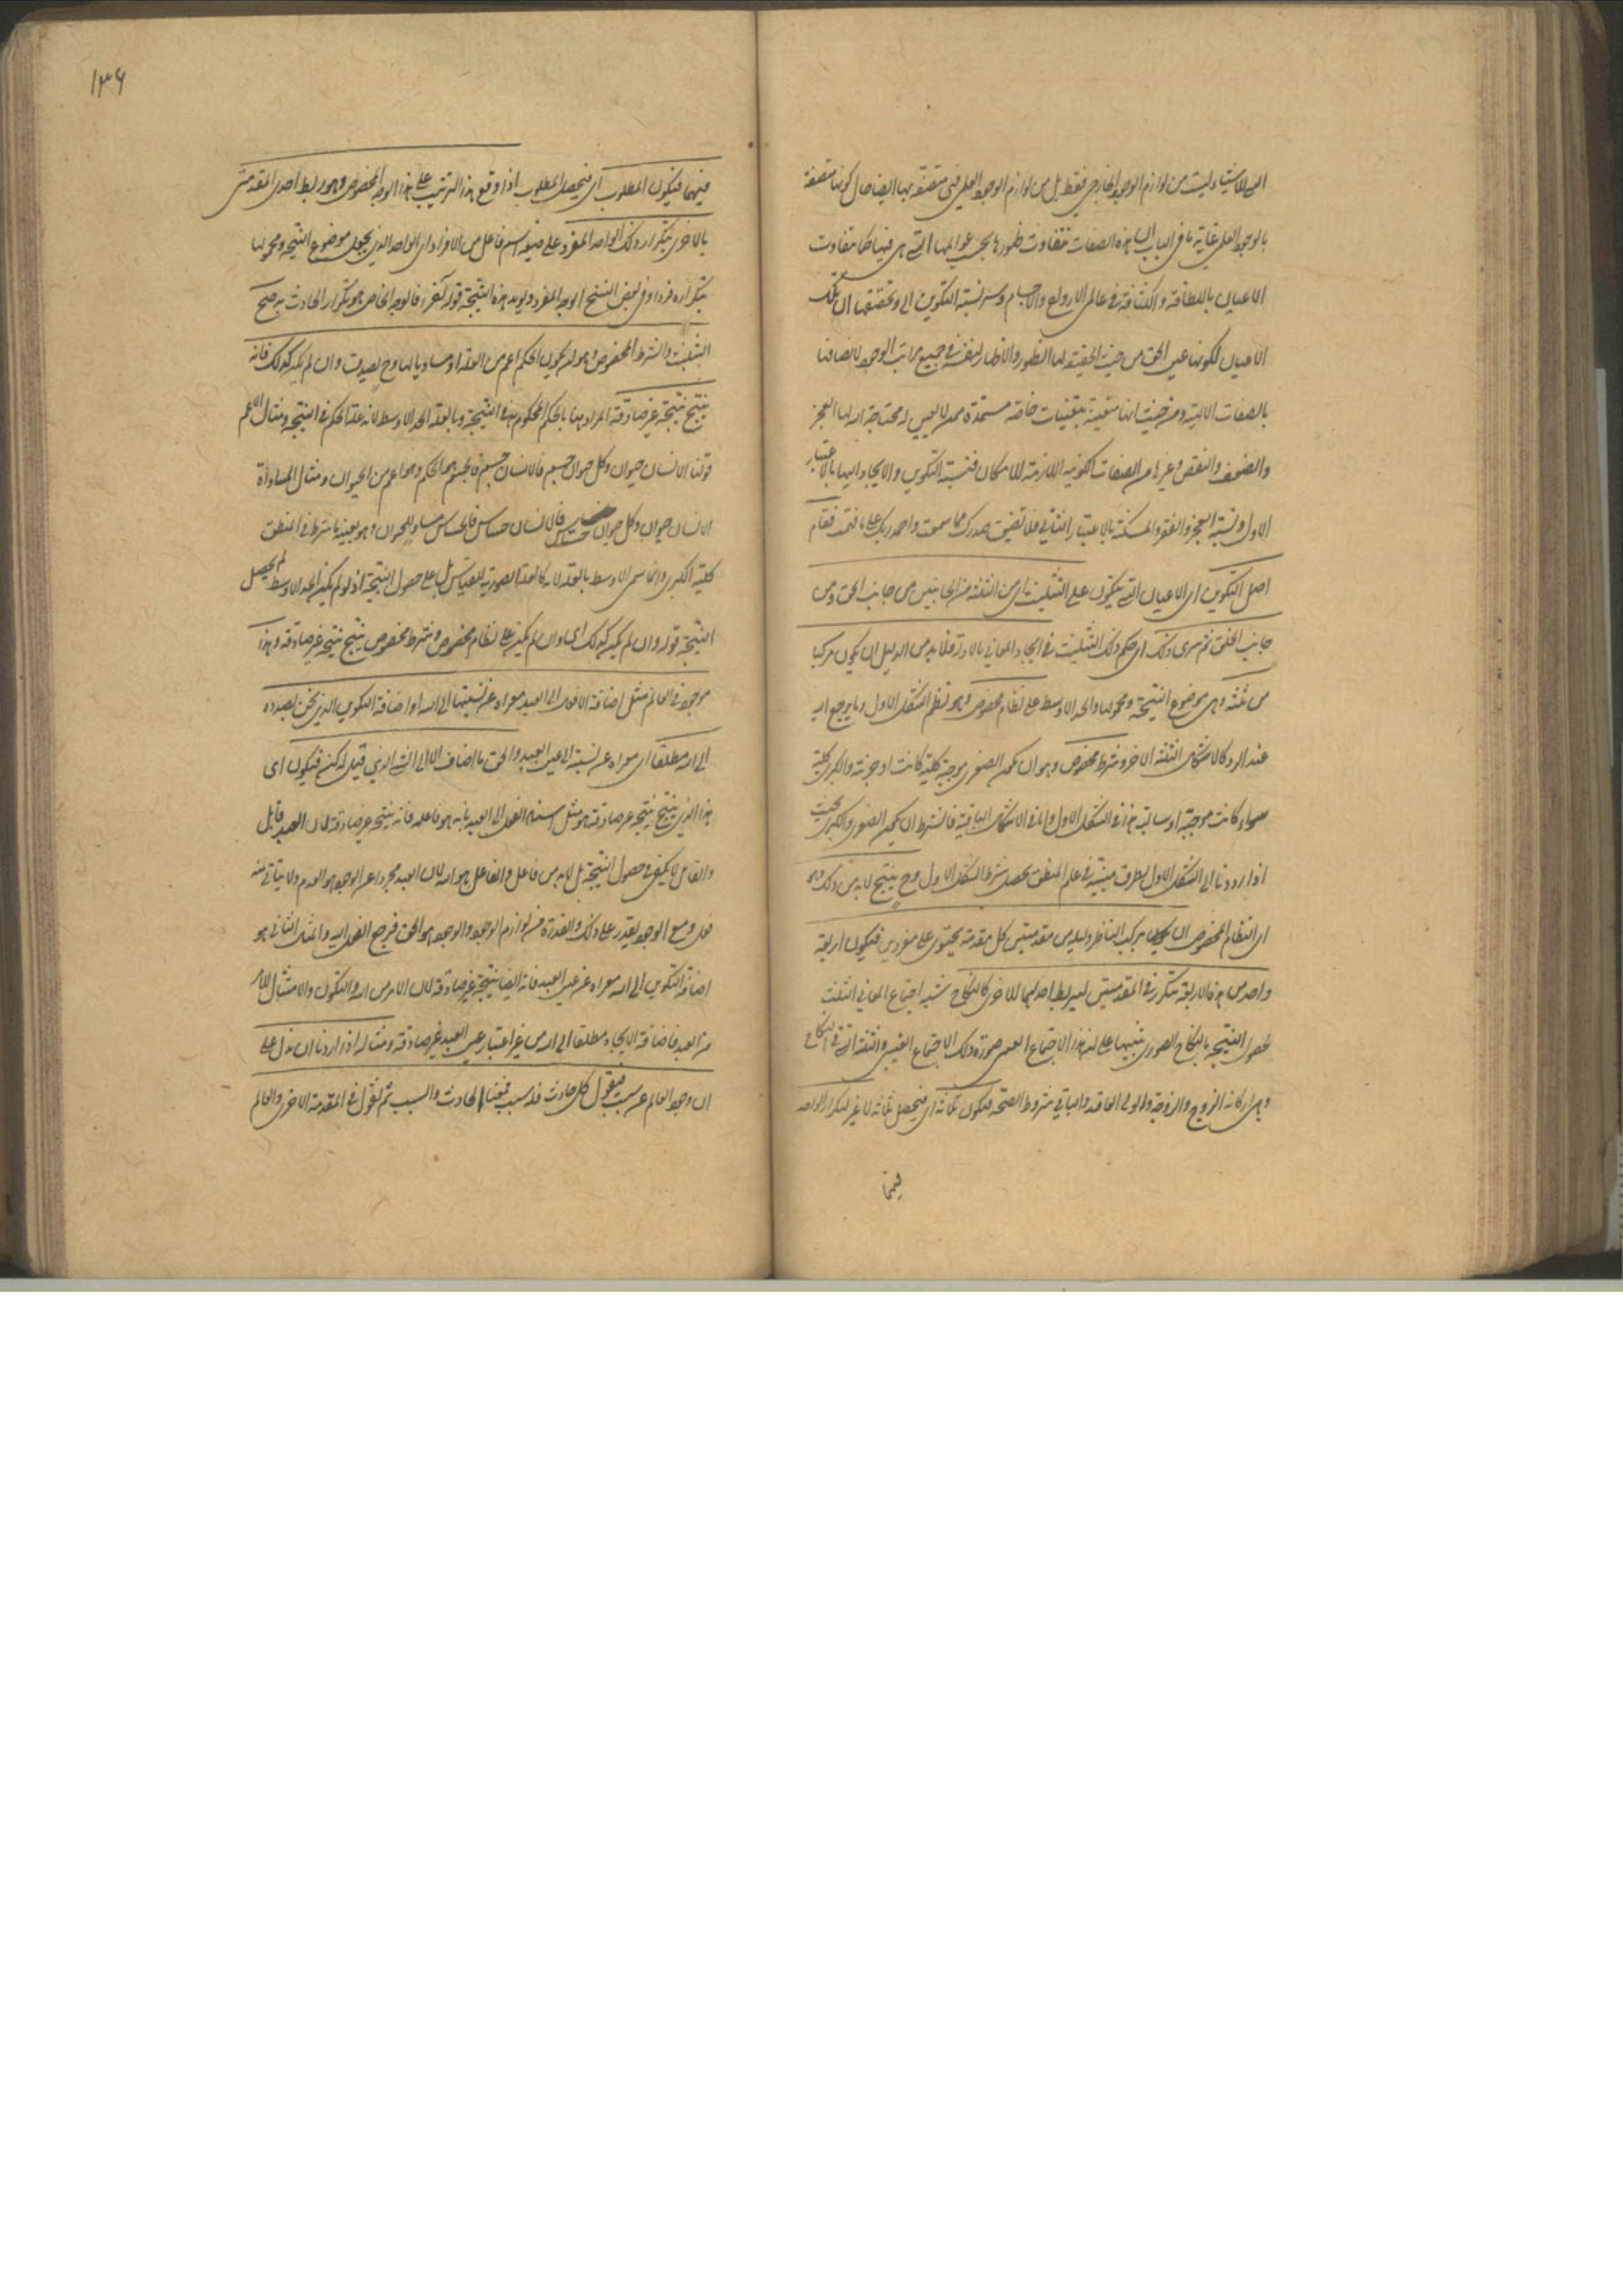 التي للاشياء ليست من لوازم الوجود الخارجي فقط بل من لوازم الوجود العلمي فهي متصفة بها ايضا حال كونها متصفة
بالوجود العلمي غاية ما في الباب ان هذه الصفات متفاوت ظهورها بحسب عوالمها التي هي فيها كما يتفاوت
الاعيان باللطافة والكثافة في عالمي الارواح والاجسام وسر نسبة التكوين الى وتحقيقها ان تلك
الاعيان لكونها عين الحق من حيث الحقيقة لها الظهور والاظهار لنفسه في جميع مراتب الوجود لاتصافها
بالصفات الالهية ومن حيث انها متعينة بتعينات خاصة مستمدة ممن لا تعين له محتاجة اليه لها العجز
والضعف والنقص وغيرها من الصفات الكونية اللازمة للامكان فنسبة التكوين والايجاد اليها بالاعتبار
الاول ونسبة العجز والفقر والمسكنة بالاعتبار الثاني فلا تضيق صدرك مما سمعت واحمد ربك على ما فهمت فقام
اصل التكوين اي الاعيان التي تتكون على التثليث اي من الثلثة من الجانبين من جانب الحق ومن
جانب الخلق ثم سرى ذلك اي حكم ذلك التثليث في ايجاد المعاني بالادلة فلا بد من الدليل ان يكون مركبا
من ثلثة وهي موضوع النتيجة ومحمولها والحد الاوسط على نظام مخصوص وهو نظم الشكل الاول وما يرجع اليه
عند الرد كالاشكال الثلثة الاخر وشرط مخصوص وهو ان تكون الصغرى موجبة كلية كانت او جزئية والكبرى كلية
سواء كانت موجبة او سالبة هذا في الشكل الاول واما في الاشكال الباقية فالشرط ان يكون الصغرى والكبرى بحيث
اذا رددنا الى الشكل الاول بطرق مبينة في علم المنطق يحصل شرط الشكل الاول وح ينتج لا بد من ذلك وهو
اي النظام المخصوص ان يركب الناظر دليله من مقدمتين كل مقدمة يحتوي على مفردين فيكون اربعة
واحد من هذه الاربعة يتكرر في المقدمتين ليربط احديهما بالاخرى كالنكاح شبه اجتماع المعاني الثلث
لحصول النتيجة بالنكاح الصوري تنبيها على ان هذا الاجتماع صورة ذلك الاجتماع الغيبي والثلثة التي في النكاح
وهي اركانه الزوج والزوجة والولي العاقد والباقي شروط الصحة فيكون ثلاثة اي فيحصل ثلاثة لا غير لتكرار الواحد
فيهما
١٣٦
فيهما فيكون المطلوب اي فيحصل المطلوب اذا وقع هذا الترتيب على هذا الوجه المخصوص وهو ربط احدى المقدمتين
بالاخرى بتكرار ذلك الواحد المفرد على صيغة اسم فاعل من الافراد اي الواحد الذي يجعل موضوع النتيجة ومحمولها
بتكراره فردا وفي بعض النسخ الوجه المفرد ويؤيد هذه النسخة قوله آخرا فالوجه الخاص هو تكرار الحادث به صح
التثليث والشرط المخصوص وهو ان يكون الحكم اعم من العلة او مساويا لها وح يصدق وان لم يكن كذلك فانه
ينتج نتيجة غير صادقة المراد هنا بالحكم المحكوم به في النتيجة وبالعلة الحد الاوسط لانه علة الحكم في النتيجة ومثال الاعم
قولنا الانسان حيوان وكل حيوان جسم فالانسان جسم فالجسم هو الحكم وهو اعم من الحيوان ومثال المساواة
الانسان حيوان وكل حيوان حساس فالانسان حساس فالحساس مساو للحيوان وهو بعينه ما شرط في المنطق
كلية الكبرى وانما سمى الاوسط بالعلة لانه كالعلة الصورية للقياس بل على حصول النتيجة اذ لو لم يكن الحد الاوسط لم يحصل
النتيجة قوله وان لم يكن كذلك اي وان لم يكن على نظام مخصوص وشرط مخصوص ينتج نتيجة غير صادقة وهذا
موجود في العالم مثل اضافة الافعال الى العبد معراة عن نسبتها الى الله او اضافة التكوين الذي نحن بصدده
الى الله مطلقا اي معراه عن نسبته الى عين العبد والحق ما اضافه الا الى الشيء الذي قيل له كن فيكون اى
هذا الذي ينتج نتيجة غير صادقة هو مثل اسناد الفعل الى العبد بانه هو فاعله فانه نتيجة غير صادقة لان العبد قابل
والقابل لا يكفي في حصول النتيجة بل لابد من فاعل والفاعل هو الله لان العبد مجردا عن الوجود هو العدم ولا يتأتى منه
فعل ومع الوجود يقدر على ذلك والقدرة من لوازم الوجود والوجود هو الحق فرجع الفعل اليه والمثال الثاني هو
اضافة التكوين الى الله معراة عن عين العبد فانه ايضا نتيجة غير صادقة لان الامر من الله والتكون والامتثال للامر
من العبد فاضافة الايجاد مطلقا الى الله من غير اعتبار عين العبد غير صادقة ومثاله اذا اردنا ان ندل على
ان وجود العالم عن سبب فنقول كل حادث فله سبب فمعنا الحادث والسبب ثم نقول في المقدمة الاخرى والعالم